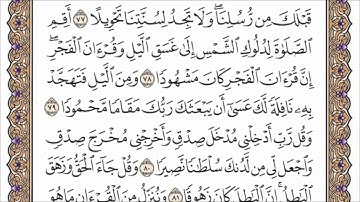 قَبْلَكَ مِن رُّسُلِنَا ۖ وَلَا تَجِدُ لِسُنَّتِنَا تَحْوِيلًا ٧٧ أَقِمِ
ٱلصَّلَوٰةَ لِدُلُوكِ ٱلشَّمْسِ إِلَىٰ غَسَقِ ٱلَّيْلِ وَقُرْءَانَ ٱلْفَجْرِ ۖ
إِنَّ قُرْءَانَ ٱلْفَجْرِ كَانَ مَشْهُودًا ٧٨ وَمِنَ ٱلَّيْلِ فَتَهَجَّدْ
بِهِۦ نَافِلَةً لَّكَ عَسَىٰٓ أَن يَبْعَثَكَ رَبُّكَ مَقَامًا مَّحْمُودًا ٧٩
وَقُل رَّبِّ أَدْخِلْنِي مُدْخَلَ صِدْقٍ وَأَخْرِجْنِي مُخْرَجَ صِدْقٍ
وَٱجْعَل لِّي مِن لَّدُنكَ سُلْطَٰنًا نَّصِيرًا ٨٠ وَقُلْ جَآءَ ٱلْحَقُّ وَزَهَقَ
ٱلْبَٰطِلُ ۚ إِنَّ ٱلْبَٰطِلَ كَانَ زَهُوقًا ٨١ وَنُنَزِّلُ مِنَ ٱلْقُرْءَانِ مَا هُوَ